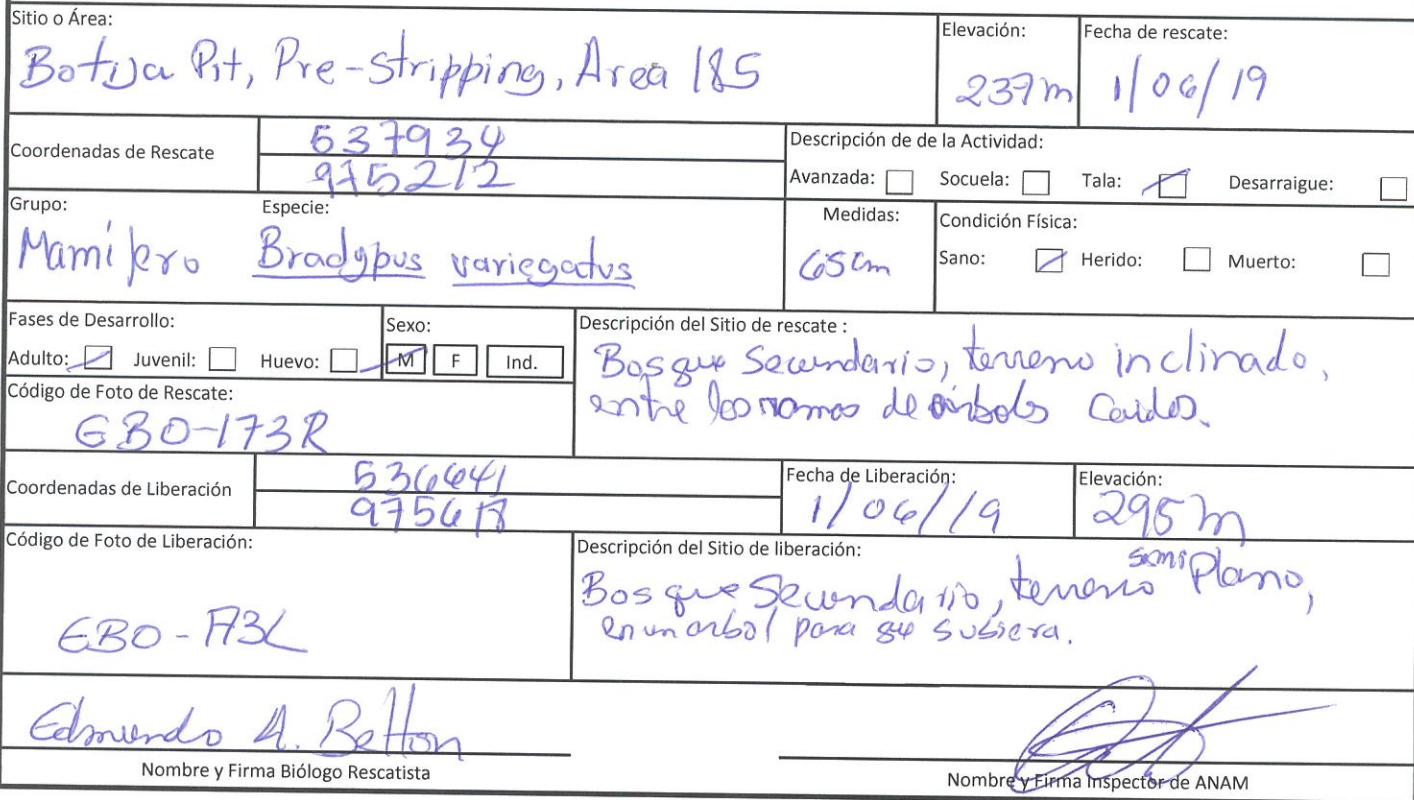 Sitio o Área:
Botija Pit, Pre-stripping, Area 185
Elevación:
237m
Fecha de rescate:
1/06/19
Coordenadas de Rescate
537934
975212
Descripción de de la Actividad:
Avanzada: Socuela: Tala: Desarraigue:
Grupo:
Mamífero
Especie:
Bradypus variegatus
Medidas:
65cm
Condición Física:
Sano: Herido: Muerto:
Fases de Desarrollo:
Adulto: Juvenil: Huevo:
Sexo:
M F Ind.
Descripción del Sitio de rescate :
Bosque Secundario, terreno inclinado,
entre los ramas de árboles Caidos.
Código de Foto de Rescate:
EBO-173R
Coordenadas de Liberación
536641
Fecha de Liberación:
1/06/19
Elevación:
295m
Código de Foto de Liberación:
EBO-173L
Descripción del Sitio de liberación:
Bosque Secundario, terreno semi Plano,
en un arbol para que subiera.
Edmundo A. Betton
Nombre y Firma Biólogo Rescatista
Nombre y Firma Inspector de ANAM